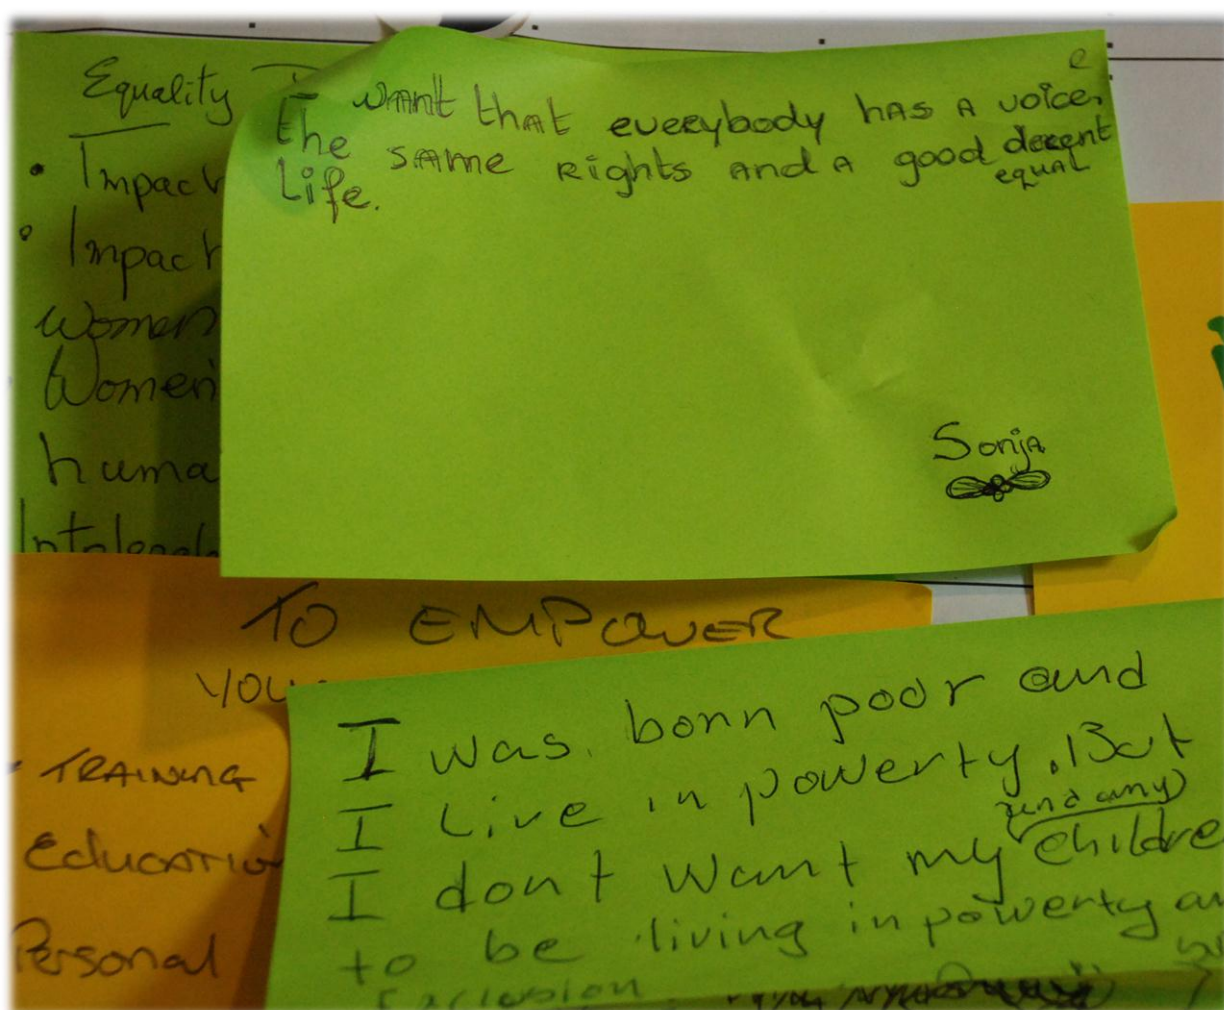 Equality
• Impact
• Impact
Women
Women'
huma
e
I want that everybody has a voice,
the same Rights and a good decent
equal
Life.
Sonja
TO EMPOWER
YOU
• TRAINING
Education
Personal
I was born poor and
I Live in powerty. But
and any
I dont want my childre
to be living in powerty an
Exclusion